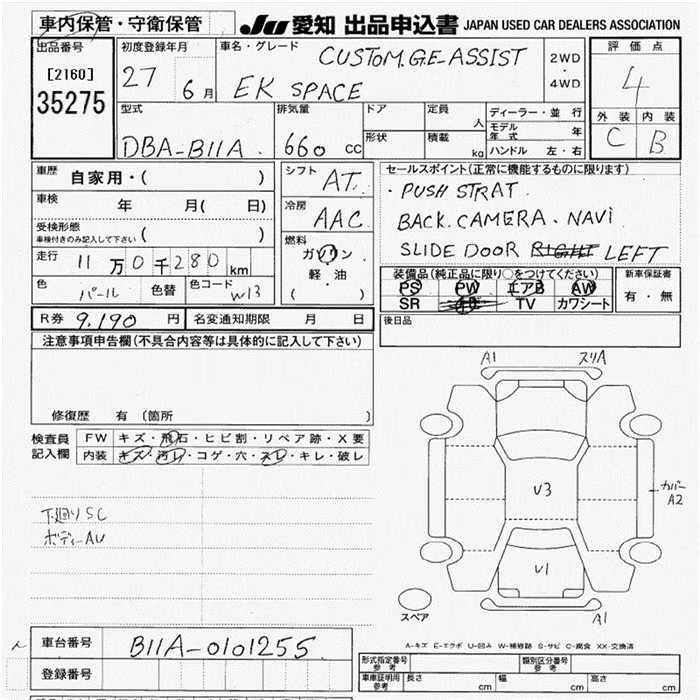 車内保管・守衛保管 JU 愛知 出品申込書 JAPAN USED CAR DEALERS ASSOCIATION
出品番号 初度登録年月 車名・グレード CUSTOM.G.E-ASSIST 2WD 評価点
[2160] 27 6月 EK SPACE ・ 4WD 4
35275 型式 排気量 ドア 定員 人 ディーラー・並行 外装 内装
DBA-B11A 660 cc 形状 積載 kg モデル年式 年 C B
ハンドル 左・右
車歴 自家用・( ) シフト AT セールスポイント(正常に機能するものに限ります)
車検 年 月( 日) 冷房 AAC ・PUSH STRAT.
受検形態 BACK.CAMERA.NAVi
車検付きのみ記入して下さい ( ) 燃料 SLIDE DOOR RIGHT LEFT
走行 11万0千280 km ガソリン 装備品(純正品に限り○をつけてください) 新車保証書
色 パール 色替 色コード W13 軽油 PS PW エアB AW 有・無
( ) SR TV カワシート
R券 9,190 円 名変通知期限 月 日 後日品
注意事項申告欄(不具合内容等は具体的に記入して下さい)
A1 スリA
修復歴 有 (箇所 )
検査員 FW キズ・飛石・ヒビ割・リペア跡・X要
記入欄 内装 キズ・汚レ・コゲ・穴・スレ・キレ・破レ
U3 カバー
A2
下廻りSC
ボディーAU
U1
スペア A1
車台番号 B11A-0101255 A-キズ E-エクボ U-凹み W-補修跡 S-サビ C-腐食 XX-交換済
登録番号 形式指定番号 参考 類別区分番号 参考
車庫証明用 参考 長さ cm 幅 cm 高さ cm